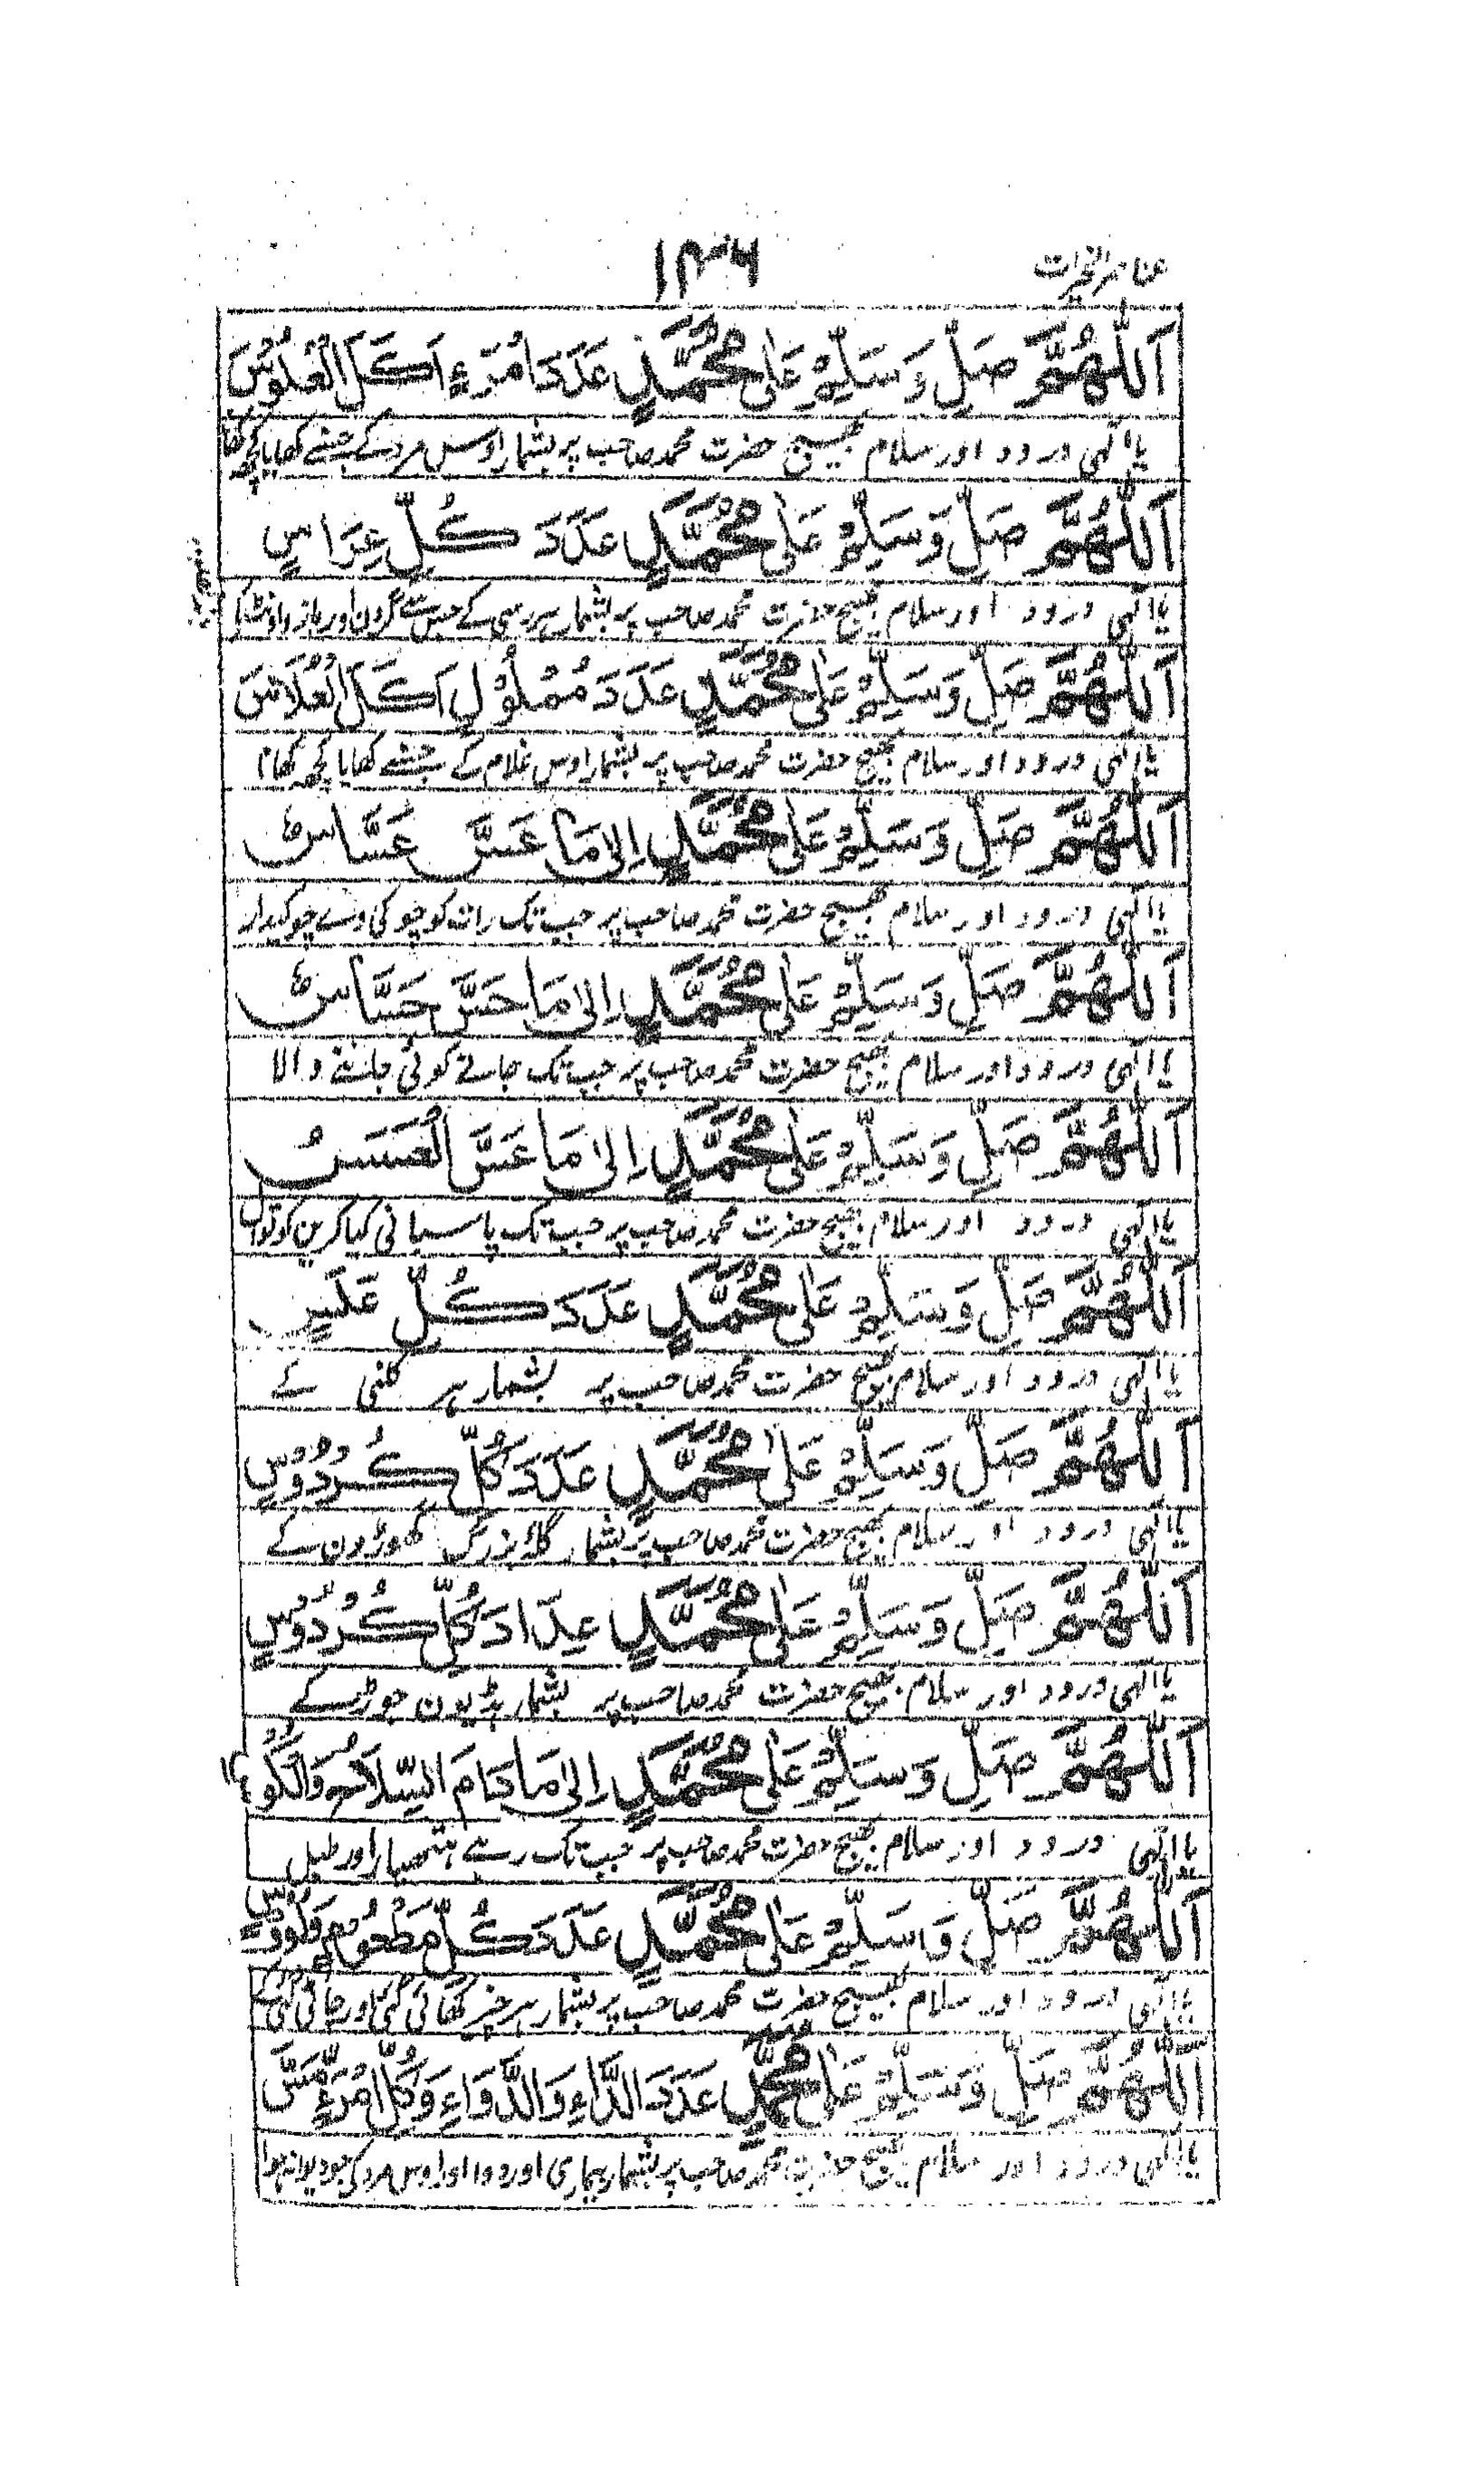 عناصر الخیرات
۱۳۶
اَللّٰهُمَّ صَلِّ وَسَلِّمْ عَلٰى مُحَمَّدٍ عَدَدَ امْرَءٍ اَكَلَ الْعَلُوْسَ
یا الٰہی درود اور سلام بھیج حضرت محمد صاحب پر بشمار اوس مرد کے جسنے کھایا کچھ کھانا
اَللّٰهُمَّ صَلِّ وَسَلِّمْ عَلٰى مُحَمَّدٍ عَدَدَ كُلِّ عِرَاسٍ
یا الٰہی درود اور سلام بھیج حضرت محمد صاحب پر بشمار ہر رسی کے جس سے گردن اور بازو اونٹ کا
اَللّٰهُمَّ صَلِّ وَسَلِّمْ عَلٰى مُحَمَّدٍ عَدَدَ مَمْلُوْلٍ اَكَلَ الْعَلَاسَ
یا الٰہی درود اور سلام بھیج حضرت محمد صاحب پر بشمار اوس غلام کے جسنے کھایا کچھ کھانا
اَللّٰهُمَّ صَلِّ وَسَلِّمْ عَلٰى مُحَمَّدٍ اِلٰى مَا عَسَّ عَسَّاسٌ
یا الٰہی درود اور سلام بھیج حضرت محمد صاحب پر جب تک رات کو چوکی دے چوکیدار
اَللّٰهُمَّ صَلِّ وَسَلِّمْ عَلٰى مُحَمَّدٍ اِلٰى مَا حَسَّ حَسَّاسٌ
یا الٰہی درود اور سلام بھیج حضرت محمد صاحب پر جب تک جانے کوئی جاننے والا
اَللّٰهُمَّ صَلِّ وَسَلِّمْ عَلٰى مُحَمَّدٍ اِلٰى مَا عَسَّ الْعَسَسُ
یا الٰہی درود اور سلام بھیج حضرت محمد صاحب پر جب تک پاسبانی کیا کرین کوتوال
اَللّٰهُمَّ صَلِّ وَسَلِّمْ عَلٰى مُحَمَّدٍ عَدَدَ كُلِّ
یا الٰہی درود اور سلام بھیج حضرت محمد صاحب پر بشمار ہر کے
اَللّٰهُمَّ صَلِّ وَسَلِّمْ عَلٰى مُحَمَّدٍ عَدَدَ كُلِّ كُرْدُوْسٍ
یا الٰہی درود اور سلام بھیج حضرت محمد صاحب پر بشمار گلۂ بزرگ گھوڑون کے
اَللّٰهُمَّ صَلِّ وَسَلِّمْ عَلٰى مُحَمَّدٍ عِدَادَ كُلِّ كُرْدُوْسٍ
یا الٰہی درود اور سلام بھیج حضرت محمد صاحب پر بشمار ہڈیون جوڑ کے
اَللّٰهُمَّ صَلِّ وَسَلِّمْ عَلٰى مُحَمَّدٍ اِلٰى مَا دَامَ السِّلَاحُ وَالْكُوْسُ
یا الٰہی درود اور سلام بھیج حضرت محمد صاحب پر جب تک رہے ہتھیار اور طبل
اَللّٰهُمَّ صَلِّ وَسَلِّمْ عَلٰى مُحَمَّدٍ عَدَدَ كُلِّ مَطْعُوْمٍ
یا الٰہی درود اور سلام بھیج حضرت محمد صاحب پر بشمار ہر چیز کھائی گئی اور
اَللّٰهُمَّ صَلِّ وَسَلِّمْ عَلٰى مُحَمَّدٍ عَدَدَ الدَّاءِ وَالدَّوَاءِ وَكُلِّ امْرَءٍ مَسَّ
یا الٰہی درود اور سلام بھیج حضرت محمد صاحب پر بشمار بیماری اور دوا اور اوس مرد کی جو دیوانہ ہوا